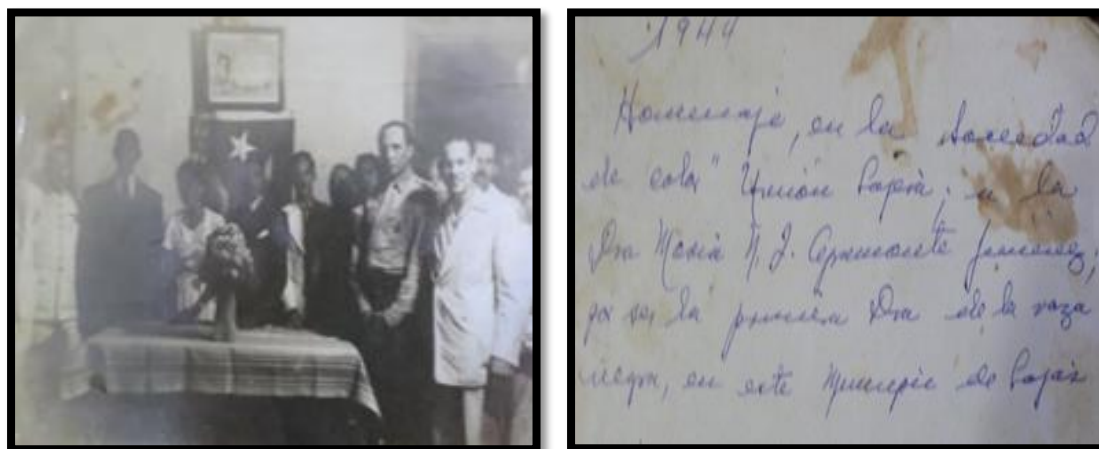 1944
Homenaje, en la Sociedad
de color "Unión Lajera", a la
Dra María N. J. Agramonte Jiménez,
por ser la primera Dra de la raza
negra, en este Municipio de Lajas